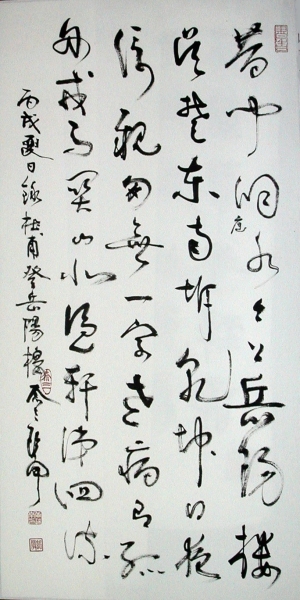 昔闻洞庭水今上岳陽楼
吴楚东南坼乾坤日夜
浮親朋無一字老病有孤
舟戎马関山北凭轩涕泗流
丙戌夏日錄杜甫登岳陽楼